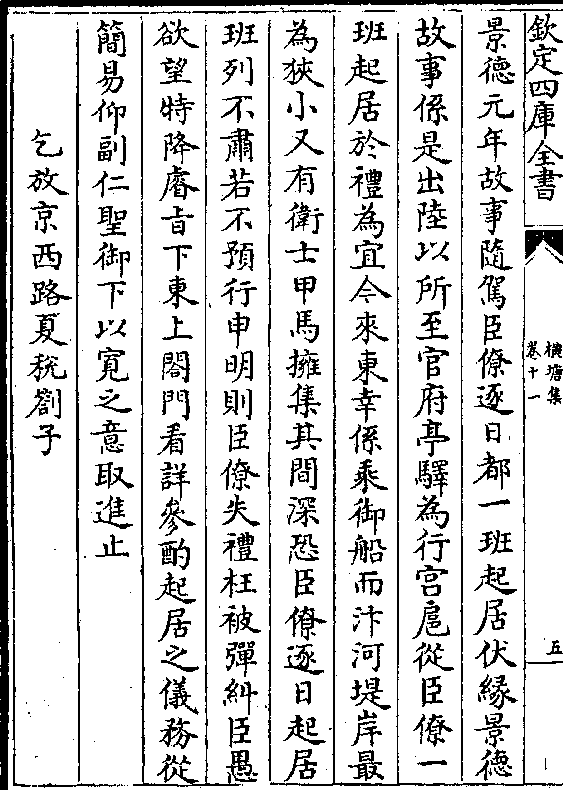 欽定四庫全書
橫塘集
卷十一
五
景德元年故事隨駕臣僚逐日都一班起居伏緣景德
故事係是出陸以所至官府亭驛為行宮扈從臣僚一
班起居於禮為宜今來東幸係乘御船而汴河堤岸最
為狹小又有衛士甲馬擁集其間深恐臣僚逐日起居
班列不肅若不預行申明則臣僚失禮枉被彈糾臣愚
欲望特降睿旨下東上閤門看詳參酌起居之儀務從
簡易仰副仁聖御下以寛之意取進止
乞放京西路夏稅劄子